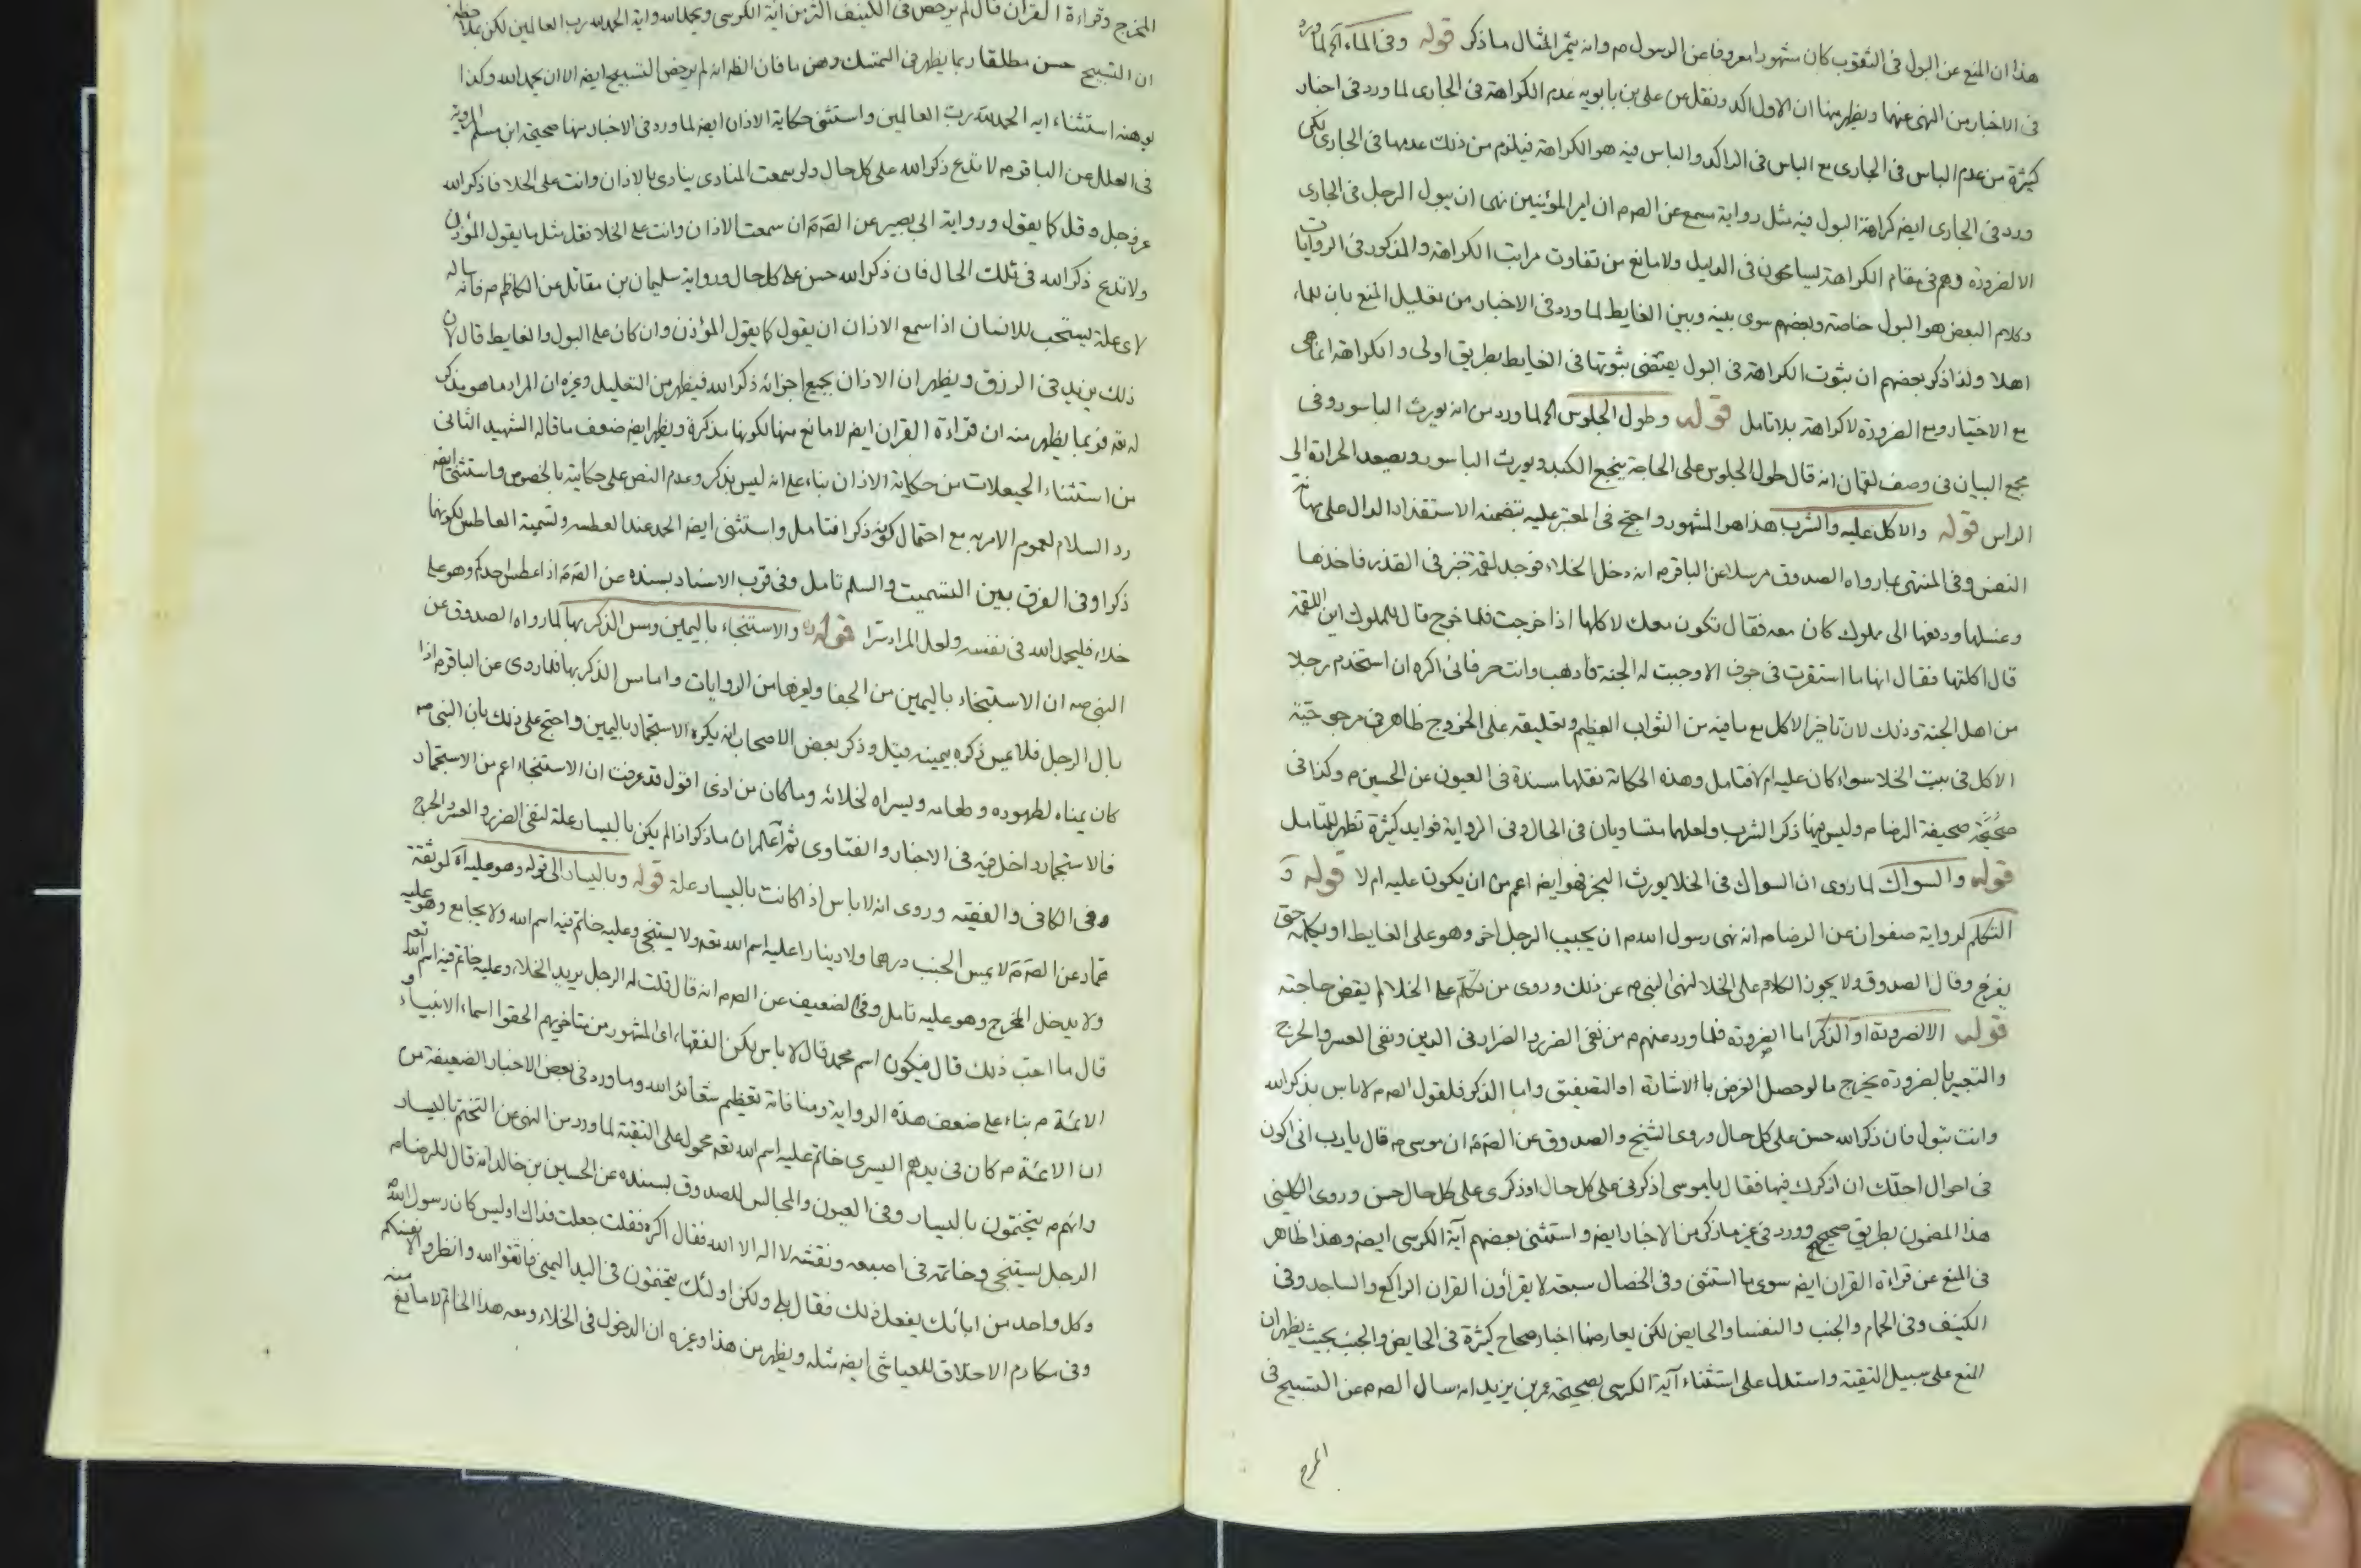 هذا ان المنع عن البول فى الثقوب كان مشهورا معروفا عن الرسول م وانه يثمر المثال ما ذكر قوله وفى الماء آه لما ورد
فى الاخبار من النهى عنهما ويظهر منها ان الاول اكد ونقل عن على بن بابويه عدم الكراهة فى الجارى لما ورد فى اخبار
كثيرة من عدم الباس فى الجارى مع الباس فى الراكد والباس فيه هو الكراهة فيلزم من ذلك عدمها فى الجارى لكن
ورد فى الجارى ايضه كراهة البول فيه مثل رواية مسمع عن الصم ان امير المؤمنين نهى ان يبول الرجل فى الجارى
الا لضرورة وهم فى مقام الكراهة يسامحون فى الدليل ولا مانع من تفاوت مراتب الكراهة والمذكور فى الروايات
وكلام البعض هو البول خاصة وبعضهم سوى بينه وبين الغايط لما ورد فى الاخبار من تعليل المنع بان للماء
اهلا ولذا ذكر بعضهم ان ثبوت الكراهة فى البول يقتضى ثبوتها فى الغايط بطريق اولى والكراهة انما هى
مع الاختيار ومع الضرورة لا كراهة بلا تامل قوله وطول الجلوس آه لما ورد من انه يورث الباسور وفى
مجمع البيان فى وصف لقمان انه قال طول الجلوس على الحاجة يفجع الكبد ويورث الباسور ويصعد الحرارة الى
الراس قوله والاكل عليه والشرب هذا هو المشهور واحتج فى المعتبر عليه بتضمنه الاستقذار الدال على مهانة
النفس وفى المنتهى بما رواه الصدوق مرسلا عن الباقر م انه دخل الخلاء فوجد لقمة خبز فى القذر فاخذها
وغسلها ودفعها الى مملوك كان معه فقال تكون معك لاكلها اذا خرجت فلما خرج قال للمملوك اين اللقمة
قال اكلتها فقال انها ما استقرت فى جوف الا وجبت له الجنة فاذهب وانت حر فانى اكره ان استخدم رجلا
من اهل الجنة وذلك لان تاخير الاكل مع ما فيه من الثواب العظيم وتعليقه على الخروج ظاهر فى مرجوحية
الاكل فى بيت الخلا سواء كان عليه ام لا فتامل وهذه الحكاية نقلها مسندة فى العيون عن الحسين م وكذا فى
صحيفة الرضا م وليس فيها ذكر الشرب ولعلهما متساويان فى الحال وفى الرواية فوايد كثيرة تظهر للتامل
قوله والسواك لما روى ان السواك فى الخلا يورث البخر فهو ايضه اعم من ان يكون عليه ام لا قوله و
التكلم لرواية صفوان عن الرضا م انه نهى رسول الله م ان يجيب الرجل اخر وهو على الغايط او يكلمه حتى
يفرغ وقال الصدوق ولا يجوز الكلام على الخلا لنهى النبى م عن ذلك وروى من تكلم على الخلا لم يقض حاجته
قوله الا لضرورة او الذكر اما الضرورة فلما ورد منهم م من نفى الضرر والضرار فى الدين ونفى العسر والحرج
والتعبير بالضرورة يخرج ما لو حصل الغرض بالاشارة او التصفيق واما الذكر فلقول الصم لا باس بذكر الله
وانت تبول فان ذكر الله حسن على كل حال وروى الشيخ والصدوق عن الصم ان موسى م قال يا رب انى اكون
فى احوال اجلك ان اذكرك فيها فقال يا موسى اذكرنى على كل حال اوذكرى على كل حال حسن وروى الكلينى
هذا المضمون بطريق صحيح وورد فى غير ما ذكر من الاخبار ايضه واستثنى بعضهم آية الكرسى ايضه وهذا ظاهر
فى المنع عن قراءة القران ايضه سوى ما استثنى وفى الخصال سبعة لا يقرأون القران الراكع والساجد وفى
الكنيف وفى الحمام والجنب والنفسا والحايض لكن يعارضها اخبار صحاح كثيرة فى الحايض والجنب بحيث يظهر ان
المنع على سبيل التقية واستدل على استثناء آية الكرسى بصحيحة عمر بن يزيد انه سال الصم عن التسبيح فى
المخرج
المخرج وقراءة القران قال لم يرخص فى الكنيف اكثر من اية الكرسى ويحمد الله واية الحمد لله رب العالمين لكن
ان التسبيح حسن مطلقا ربما يظهر فى التمسك وهن ما فان الظ انه لم يرخص التسبيح ايضه الا ان يحمد الله وكذا
يوهنه استثناء اية الحمد لله رب العالمين واستثنى حكاية الاذان ايضه لما ورد فى الاخبار منها صحيحة ابن مسلم المروية
فى العلل عن الباقر م لا تدع ذكر الله على كل حال ولو سمعت المنادى ينادى بالاذان وانت على الخلا فاذكر الله
عز وجل وقل كما يقول ورواية ابى بصير عن الصم ان سمعت الاذان وانت على الخلا فقل مثل ما يقول المؤذن
ولا تدع ذكر الله فى تلك الحال فان ذكر الله حسن على كل حال ورواية سليمان بن مقاتل عن الكاظم م فانه ساله
لاى علة يستحب للانسان اذا سمع الاذان ان يقول كما يقول المؤذن وان كان على البول والغايط قال لان
ذلك يزيد فى الرزق ويظهر ان الاذان بجميع اجزائه ذكر الله فيظهر من التعليل وغيره ان المراد ما هو يذكر
لله تعه فربما يظهر منه ان قراءة القران ايضه لا مانع منها لكونها مذكرة ويظهر ايضه ضعف ما قاله الشهيد الثانى
من استثناء الحيعلات من حكاية الاذان بناء على انه ليس بذكر وعدم النص على حكايته بالخصوص واستثنى ايضه
رد السلام لعموم الامر به مع احتمال كونه ذكرا فتامل واستثنى ايضه الحمد عند العطسه وتسمية العاطس لكونهما
ذكرا وفى الفرق بين التسميت والسلم تامل وفى قرب الاسناد بسنده عن الصم اذا عطس احدكم وهو على
خلاء فليحمد الله فى نفسه ولعل المراد سرا قوله والاستنجاء باليمين ومس الذكر بها لما رواه الصدوق عن
النبى صه ان الاستنجاء باليمين من الجفا ولغيرها من الروايات واما مس الذكر بها فلما روى عن الباقر م اذا
بال الرجل فلا يمس ذكره بيمينه قيل وذكر بعض الاصحاب انه يكره الاستجمار باليمين واحتج على ذلك بان النبى صه
كان يمناه لطهوره وطعامه ويسراه لخلائه وما كان من اذى اقول قد عرفت ان الاستنجاء اعم من الاستجمار
فالاستجمار داخل فيه فى الاخبار والفتاوى ثم اعلم ان ما ذكر اذا لم يكن باليسار علة لنفى الضرر والعسر والحرج
وفى الكافى والفقيه وروى انه لا باس اذا كانت باليسار علة قوله وباليسار الى قوله وهو عليه آه لموثقة
عمار عن الصم لا يمس الجنب درهما ولا دينارا عليه اسم الله تعه ولا يستنجى وعليه خاتم فيه اسم الله ولا يجامع وهو عليه
ولا يدخل المخرج وهو عليه تامل وفى الضعيف عن الصم انه قال قلت له الرجل يريد الخلاء وعليه خاتم فيه اسم الله تعه
قال ما احب ذلك قال فيكون اسم محمد قال لا باس لكن الفقهاء اى المشهور من متاخريهم الحقوا اسماء الانبياء و
الائمة م بناء على ضعف هذه الرواية ومنافاته تعظيم شعائر الله وما ورد فى بعض الاخبار الضعيفة من
ان الائمة م كان فى يدهم اليسرى خاتم عليه اسم الله تعه محمول على التقية لما ورد من النهى عن التختم باليسار
وانهم م يتختمون باليسار وفى العيون والمجالس للصدوق بسنده عن الحسين بن خالد انه قال للرضا م
الرجل يستنجى وخاتمه فى اصبعه ونقشه لا اله الا الله فقال اكره فقلت جعلت فداك اوليس كان رسول الله صه
وكل واحد من ابائك يفعل ذلك فقال بلى ولكن اولئك يتختمون فى اليد اليمنى فاتقوا الله وانظروا لانفسكم
وفى مكارم الاخلاق للعياشى ايضه مثله ويظهر من هذا وغيره ان الدخول فى الخلاء ومعه هذا الخاتم لا مانع منه